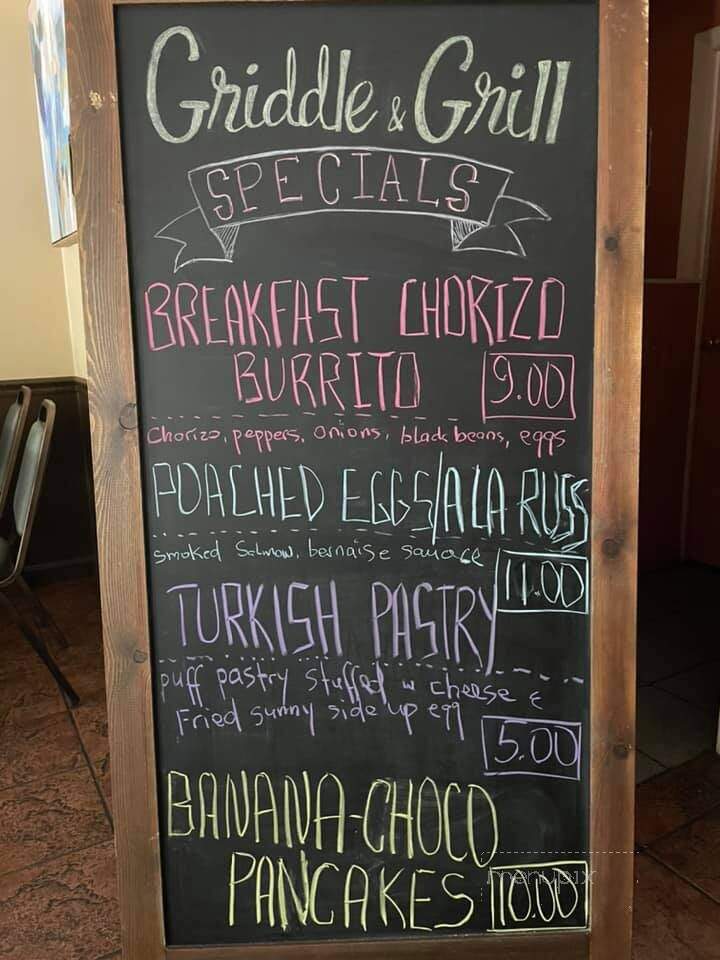 Griddle & Grill
SPECIALS
BREAKFAST CHORIZO
BURRITO 9.00
Chorizo, peppers, onions, black beans, eggs
POACHED EGGS/A LA RUSS
smoked Salmon, bernaise sauace
11.00
TURKISH PASTRY
puff pastry stuffed w cheese &
Fried sunny side up egg
5.00
BANANA-CHOCO
PANCAKES 10.00
menupix